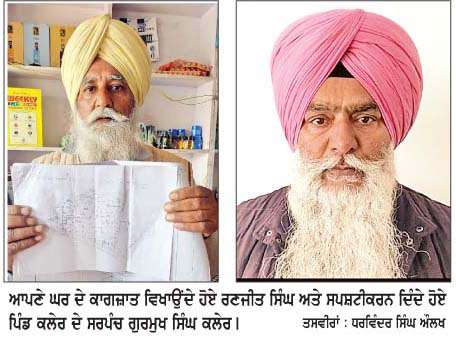 WEEKLY
ਆਪਣੇ ਘਰ ਦੇ ਕਾਗਜ਼ਾਤ ਵਿਖਾਉਂਦੇ ਹੋਏ ਰਣਜੀਤ ਸਿੰਘ ਅਤੇ ਸਪਸ਼ਟੀਕਰਨ ਦਿੰਦੇ ਹੋਏ
ਪਿੰਡ ਕਲੇਰ ਦੇ ਸਰਪੰਚ ਗੁਰਮੁਖ ਸਿੰਘ ਕਲੇਰ।
ਤਸਵੀਰਾਂ : ਧਰਵਿੰਦਰ ਸਿੰਘ ਔਲਖ